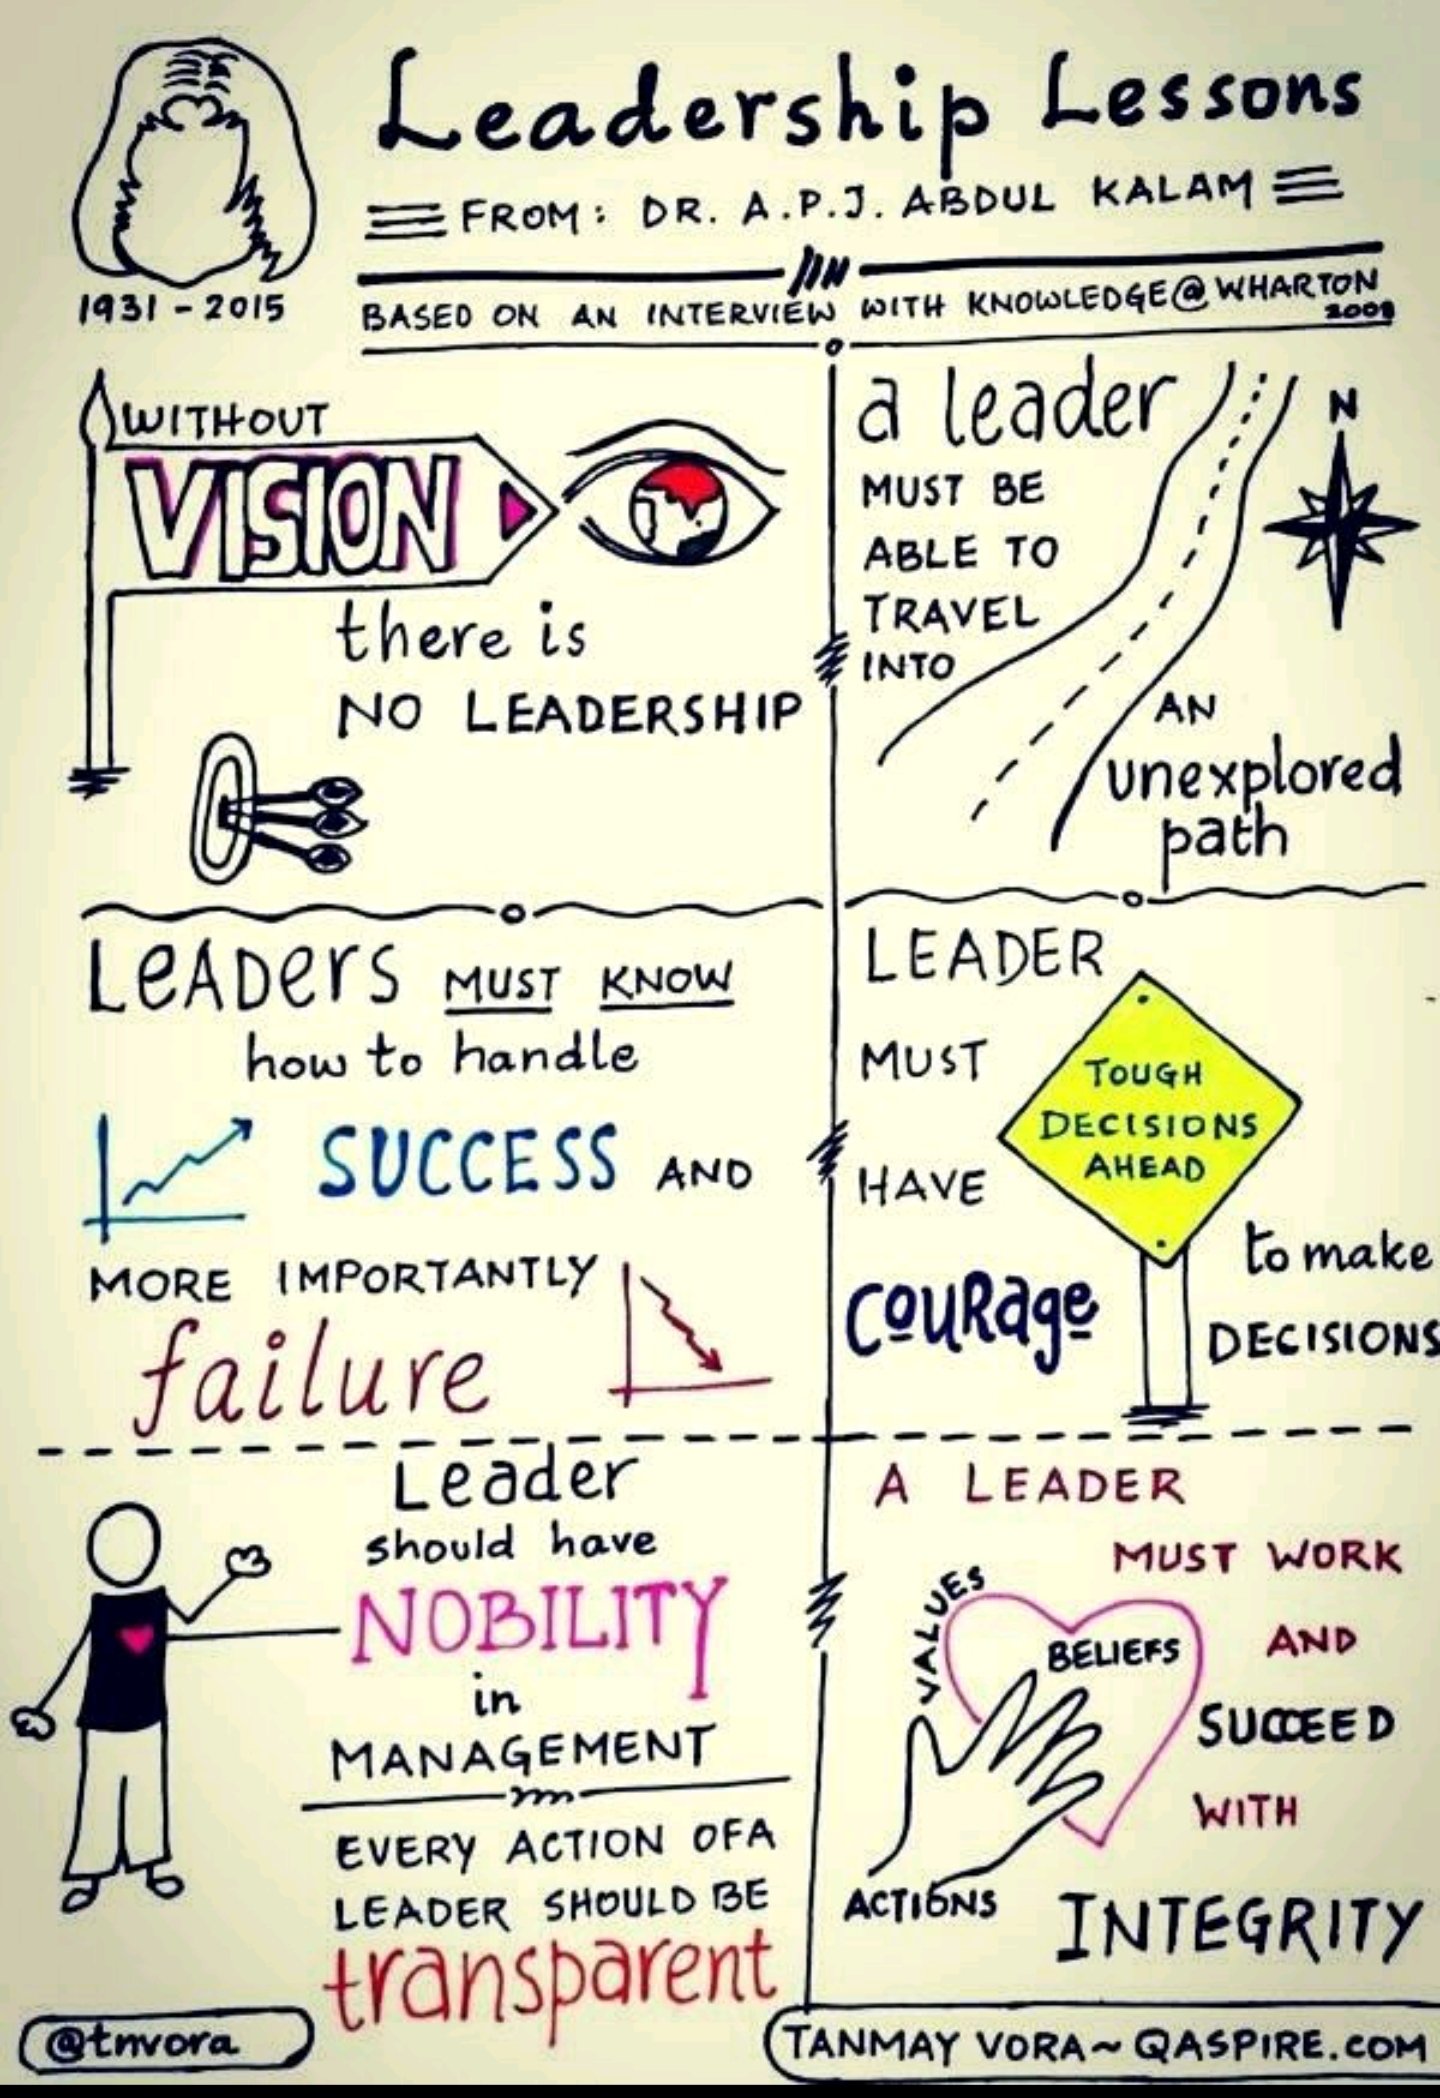 Leadership Lessons
FROM: DR. A.P.J. ABDUL KALAM
1931 - 2015
BASED ON AN INTERVIEW WITH KNOWLEDGE@WHARTON
WITHOUT
VISION
there is
NO LEADERSHIP
a leader
MUST BE
ABLE TO
TRAVEL
INTO
N
AN
unexplored
path
LEADERS MUST KNOW
how to handle
SUCCESS AND
MORE IMPORTANTLY
failure
LEADER
MUST
HAVE
COURAGE
TOUGH
DECISIONS
AHEAD
to make
DECISIONS
Leader
should have
NOBILITY
in
MANAGEMENT
EVERY ACTION OF A
LEADER SHOULD BE
transparent
A LEADER
MUST WORK
AND
SUCCEED
WITH
INTEGRITY
VALUES
BELIEFS
ACTIONS
@tnvora
TANMAY VORA~QASPIRE.COM